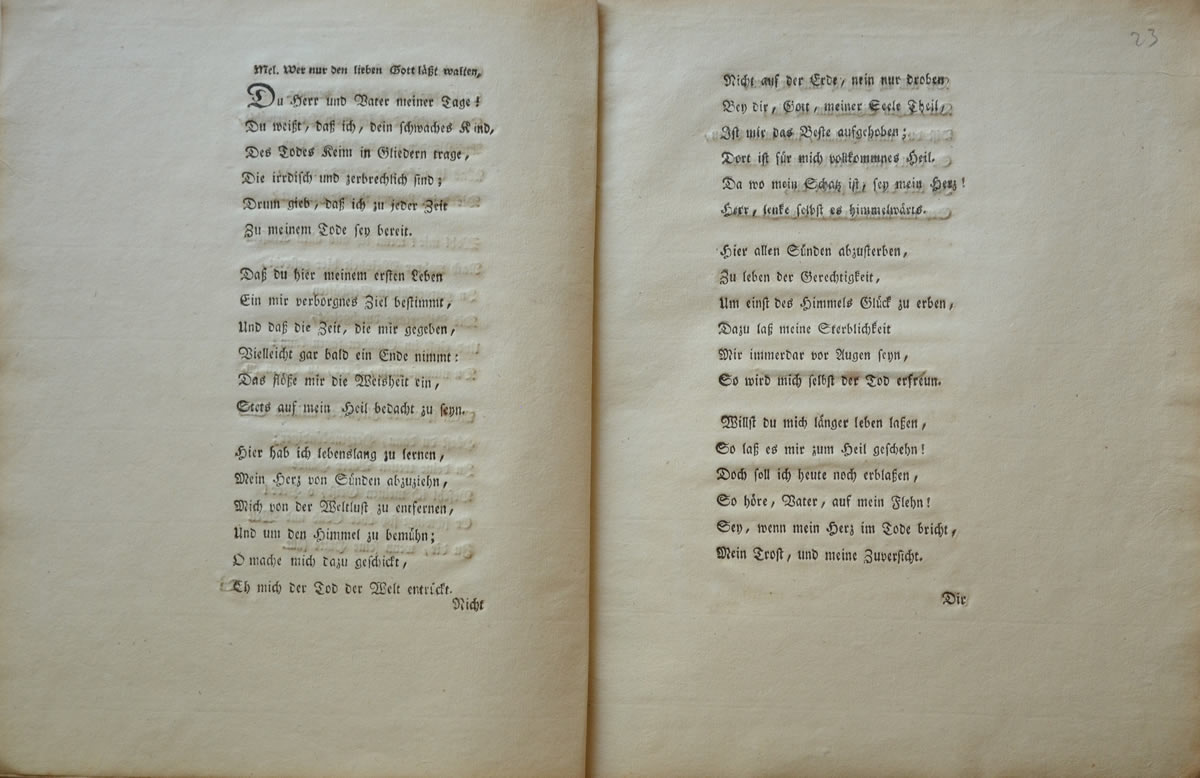 Mel. Wer nur den lieben Gott läßt walten,
Du Herr und Vater meiner Tage!
Du weißt, daß ich, dein schwaches Kind,
Des Todes Keim in Gliedern trage,
Die irrdisch und zerbrechlich sind;
Drum gieb, daß ich zu jeder Zeit
Zu meinem Tode sey bereit.
Daß du hier meinem ersten Leben
Ein mir verborgnes Ziel bestimmt,
Und daß die Zeit, die mir gegeben,
Vielleicht gar bald ein Ende nimmt:
Das flöße mir die Weisheit ein,
Stets auf mein Heil bedacht zu seyn.
Hier hab ich lebenslang zu lernen,
Mein Herz von Sünden abzuziehn,
Mich von der Weltlust zu entfernen,
Und um den Himmel zu bemühn;
O mache mich dazu geschickt,
Eh mich der Tod der Welt entrückt.
Nicht
23
Nicht auf der Erde, nein nur droben
Bey dir, Gott, meiner Seele Theil,
Ist mir das Beste aufgehoben;
Dort ist für mich vollkommnes Heil.
Da wo mein Schatz ist, sey mein Herz!
Herr, lenke selbst es himmelwärts.
Hier allen Sünden abzusterben,
Zu leben der Gerechtigkeit,
Um einst des Himmels Glück zu erben,
Dazu laß meine Sterblichkeit
Mir immerdar vor Augen seyn,
So wird mich selbst der Tod erfreun.
Willst du mich länger leben laßen,
So laß es mir zum Heil geschehn!
Doch soll ich heute noch erblaßen,
So höre, Vater, auf mein Flehn!
Sey, wenn mein Herz im Tode bricht,
Mein Trost, und meine Zuversicht.
Dir